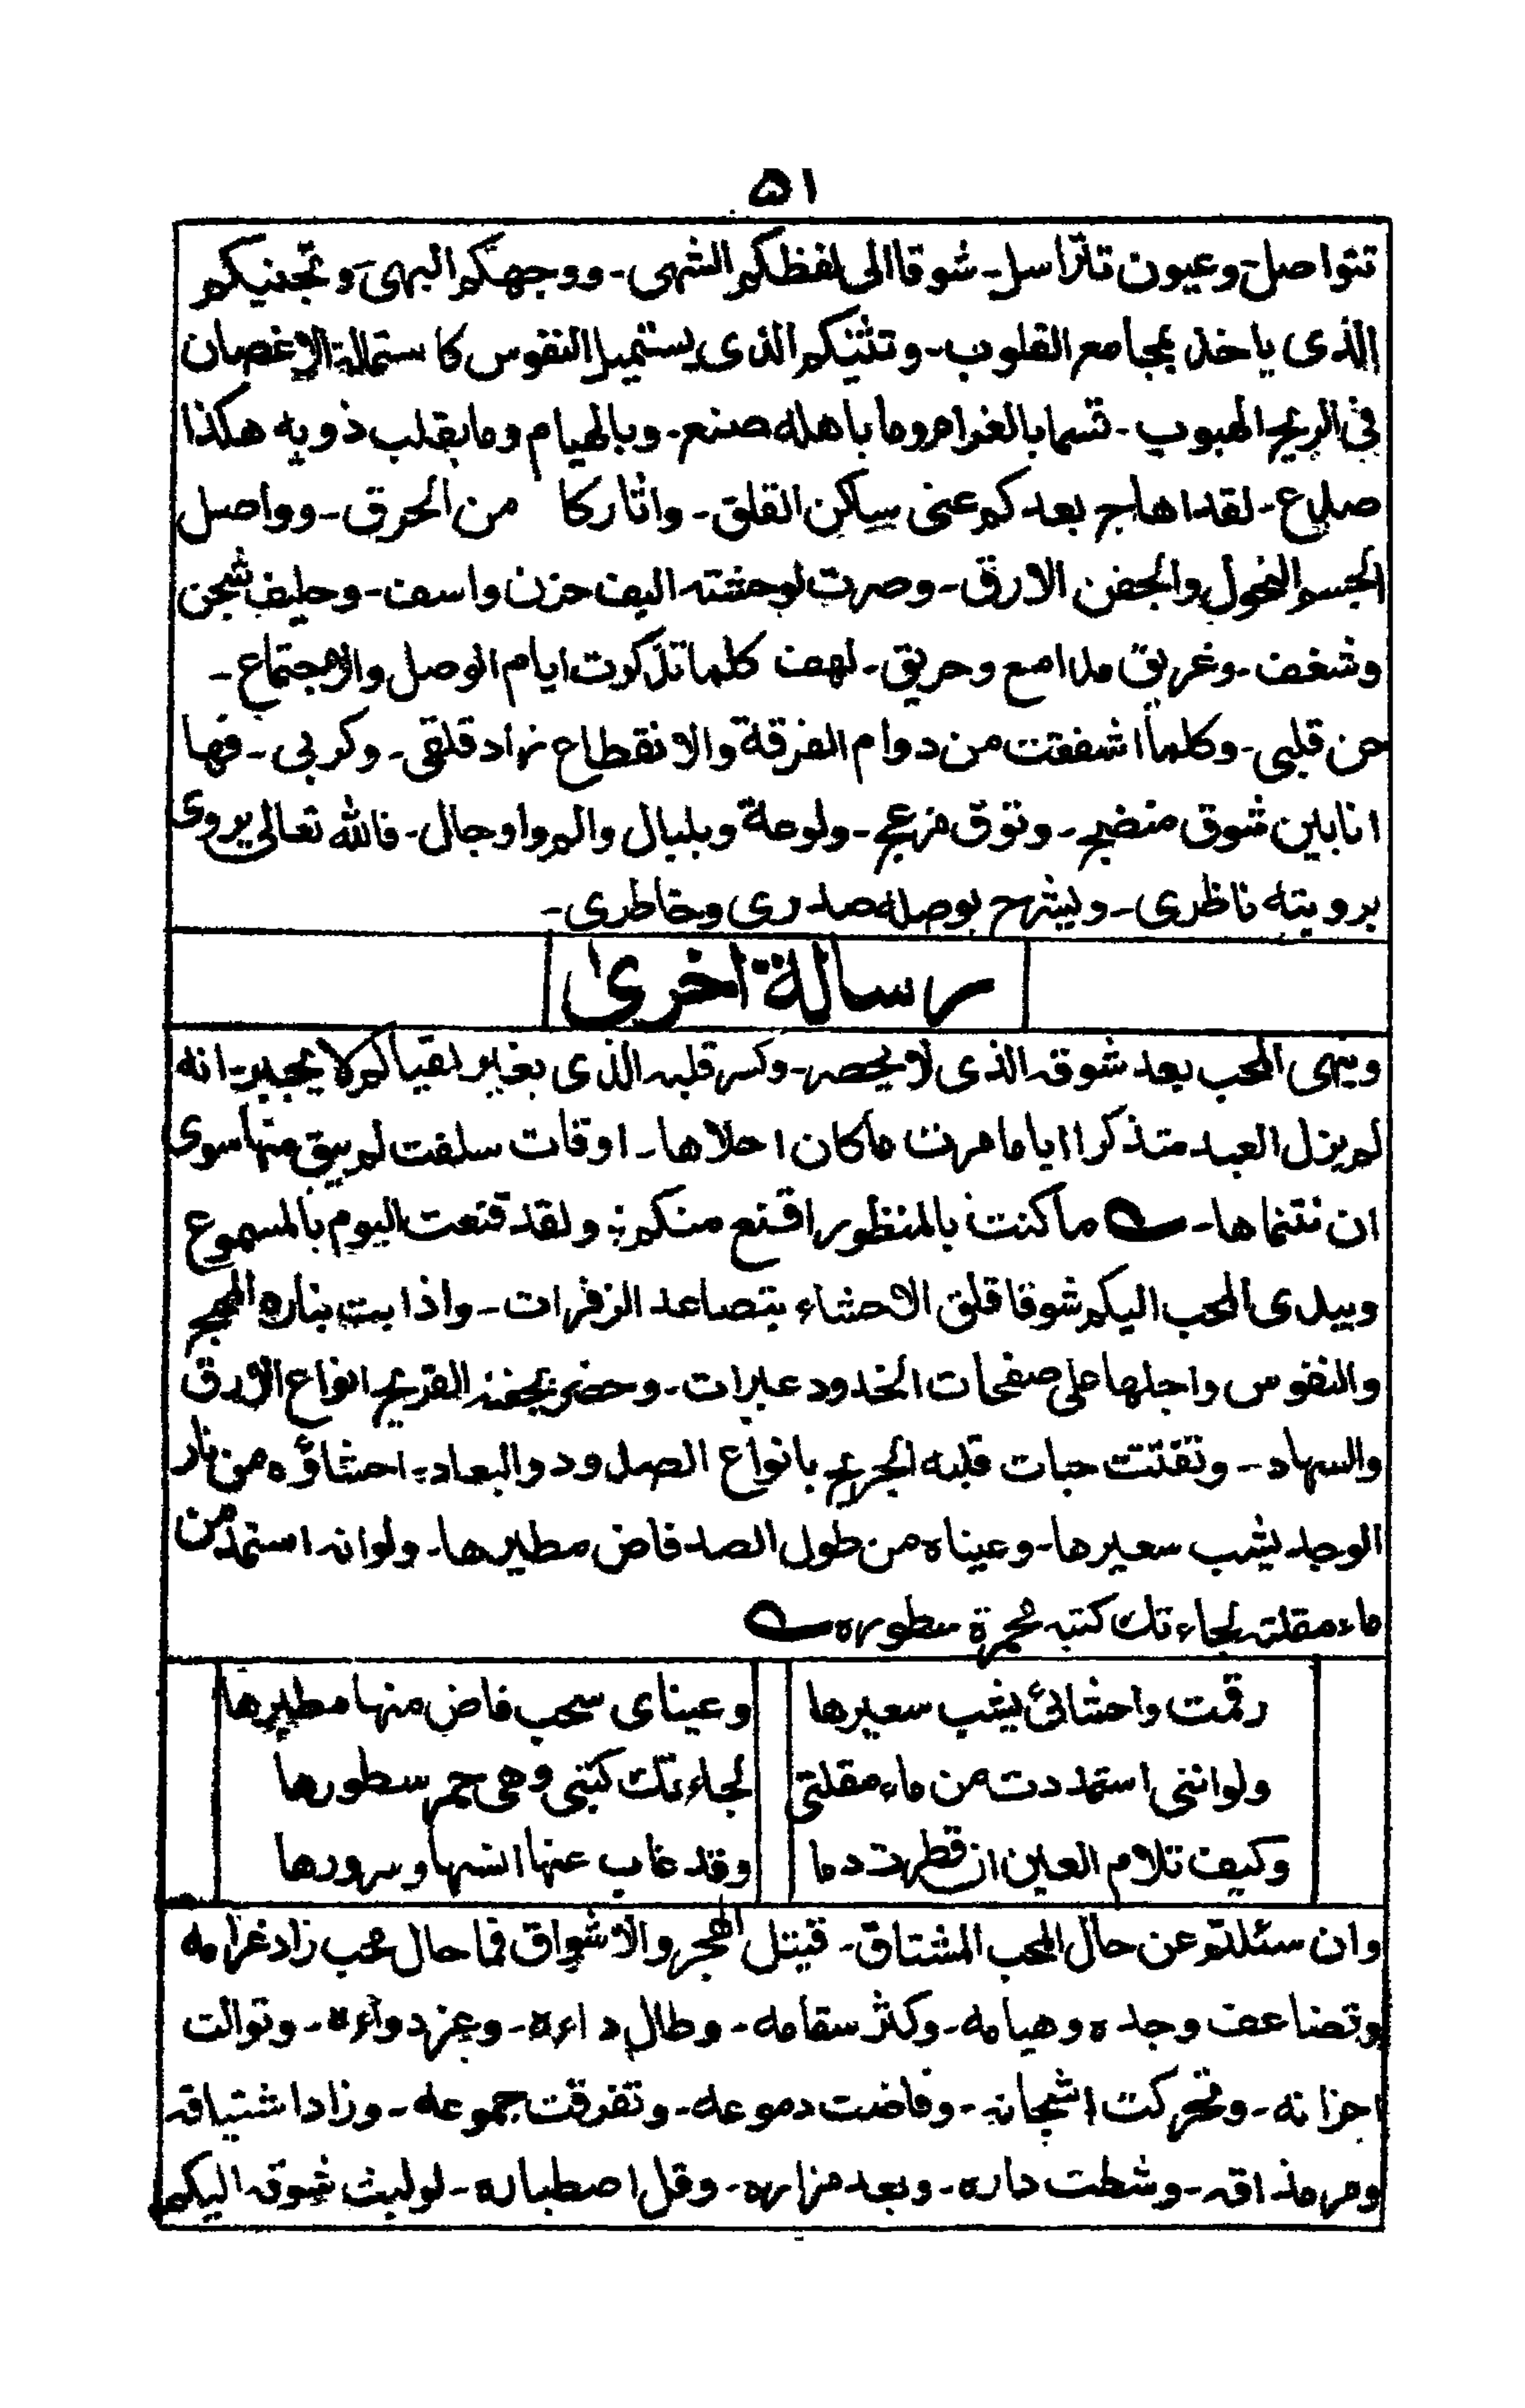 ۵۱
تتواصل۔ وعيون تتراسل۔ شوقا الى لفظكم الشهى۔ ووجهكم البهى۔ وتجنيكم
الذى ياخذ بمجامع القلوب۔ وتثنيكم الذى يستميل النفوس كاستمالة الاغصان
فى الريح الهبوب۔ قسما بالغرام وما باهله صنع۔ وبالهيام وما بقلب ذويه هكذا
صدع۔ لقد اهاج بعدكم عنى ساكن القلق۔ واثار كا من الحرق۔ وواصل
الجسم النحول والجفن الارق۔ وصرت لوحشته اليف حزن واسف۔ وحليف شجن
وشغف۔ وغريق مدامع وحريق۔ لهف كلما تذكرت ايام الوصل والاجتماع۔
حن قلبى۔ وكلما اشفقت من دوام الفرقة والانقطاع زاد قلقى۔ وكربى۔ فها
انا بين شوق منضج۔ وتوق مزعج۔ ولوعة وبلبال والم واوجال۔ فالله تعالى يروى
برويته ناظرى۔ ويشرح بوصله صدرى وخاطرى۔
رسالة اخرى
وينهى المحب بعد شوقه الذى لا يحصر۔ وكسر قلبه الذى بغير لقياكم لا يجبر۔ انه
لم يزل العبد متذكرا اياما مرت ما كان احلاها۔ اوقات سلفت لم يبق منها سوى
ان نتنماها۔ ؎ ما كنت بالمنظور اقنع منكم ؛ ولقد قنعت اليوم بالمسموع
ويبدى المحب اليكم شوقا قلق الاحشاء بتصاعد الزفرات۔ واذابت بناره المهج
والنفوس واجلها على صفحات الخدود عبرات۔ وحضر بجفنه القريح انواع الارق
والسهاد۔ وتفتتت حبات قلبه الجريح بانواع الصدود والبعاد۔ احشاؤه من نار
الوجد يشب سعيرها۔ وعيناه من طول الصد فاض مطيرها۔ ولو انه استمد من
ماء مقلته لجاءتك كتبه محمرة سطوره ؎
رقمت واحشائى يشب سعيرها وعيناى سحب فاض منها مطيرها
ولو اننى استمددت من ماء مقلتى لجاءتك كتبى وهى حمر سطورها
وكيف تلام العين ان قطرت دما وقد غاب عنها انسها وسرورها
وان سئلتم عن حال المحب المشتاق۔ قتيل الهجر والاشواق فما حال محب زاد غرامه
وتضاعف وجده وهيامه۔ وكثر سقامه۔ وطال داءه۔ وعز دواءه۔ وتوالت
احزانه۔ وتحركت اشجانه۔ وفاضت دموعه۔ وتفرقت جموعه۔ وزاد اشتياقه
ومر مذاقه۔ وشطت داره۔ وبعد مزاره۔ وقل اصطباره۔ لوليث شوقه اليكم